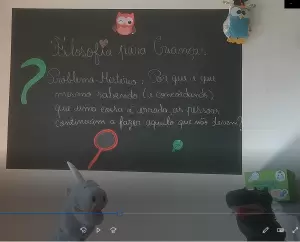 Filosofia para Crianças
Problema-Mistério: Por que é que
mesmo sabendo (e concordando)
que uma coisa é errada, as pessoas
continuam a fazer aquilo que não devem?